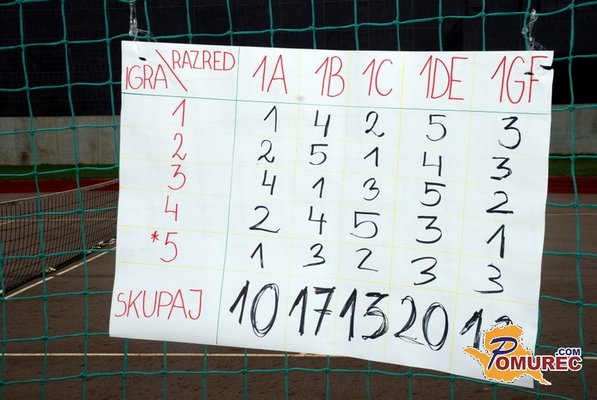 IGRA\RAZRED 1A 1B 1C 1DE 1GF
1 1 4 2 5 3
2 2 5 1 4 3
3 4 1 3 5 2
4 2 4 5 3 1
*5 1 3 2 3 3
SKUPAJ 10 17 13 20
POMUREC.COM